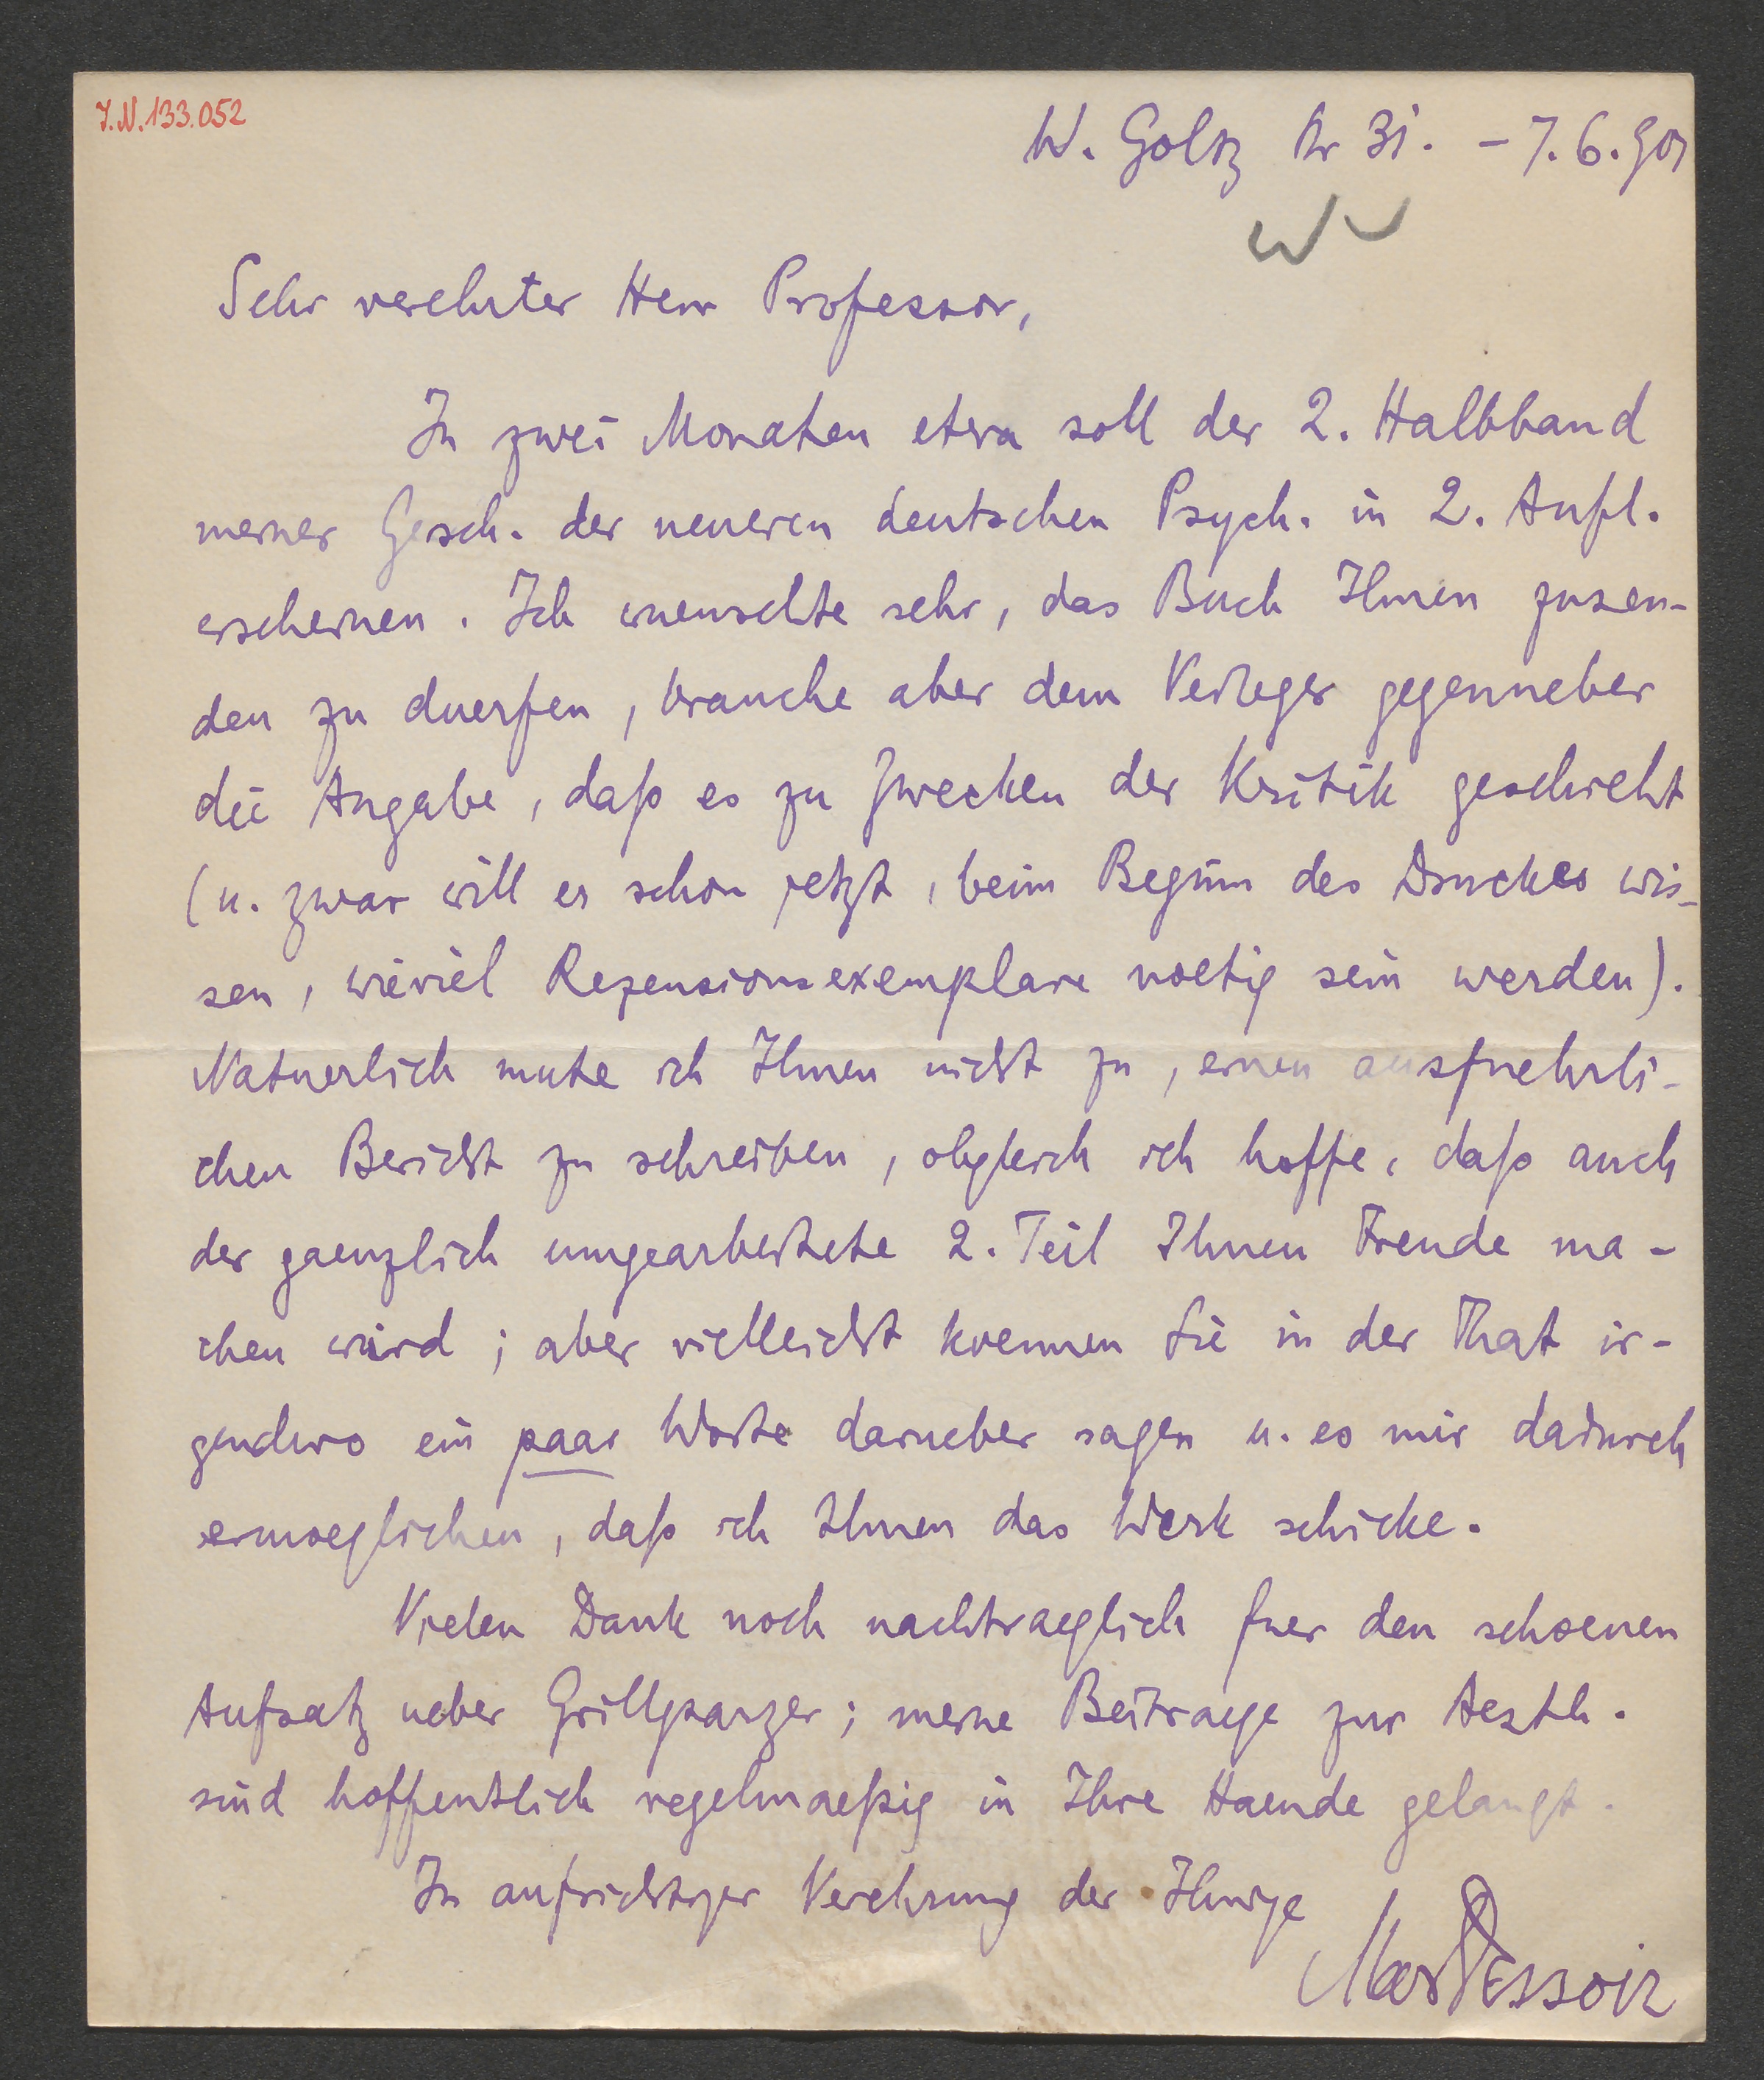 J.N.133.052
W. Goltz Str 31. - 7.6.901
Sehr verehrter Herr Professor,
In zwei Monaten etwa soll der 2. Halbband
meiner Gesch. der neueren deutschen Psych. in 2. Aufl.
erscheinen. Ich wuenschte sehr, das Buch Ihnen zusen-
den zu duerfen, brauche aber dem Verleger gegenueber
die Angabe, daß es zu Zwecken der Kritik geschieht
(u. zwar will er schon jetzt, beim Beginn des Druckes wis-
sen, wieviel Rezensionsexemplare noetig sein werden).
Natuerlich mute ich Ihnen nicht zu, einen ausfuehrli-
chen Bericht zu schreiben, obgleich ich hoffe, daß auch
der gaenzlich umgearbeitete 2. Teil Ihnen Freude ma-
chen wird; aber vielleicht koennen Sie in der That ir-
gendwo ein paar Worte darueber sagen u. es mir dadurch
ermoeglichen, daß ich Ihnen das Werk schicke.
Vielen Dank noch nachtraeglich fuer den schoenen
Aufsatz ueber Grillparzer; meine Beitraege zur Aesth.
sind hoffentlich regelmaeßig in Ihre Haende gelangt.
In aufrichtiger Verehrung der Ihnige
Max Dessoir